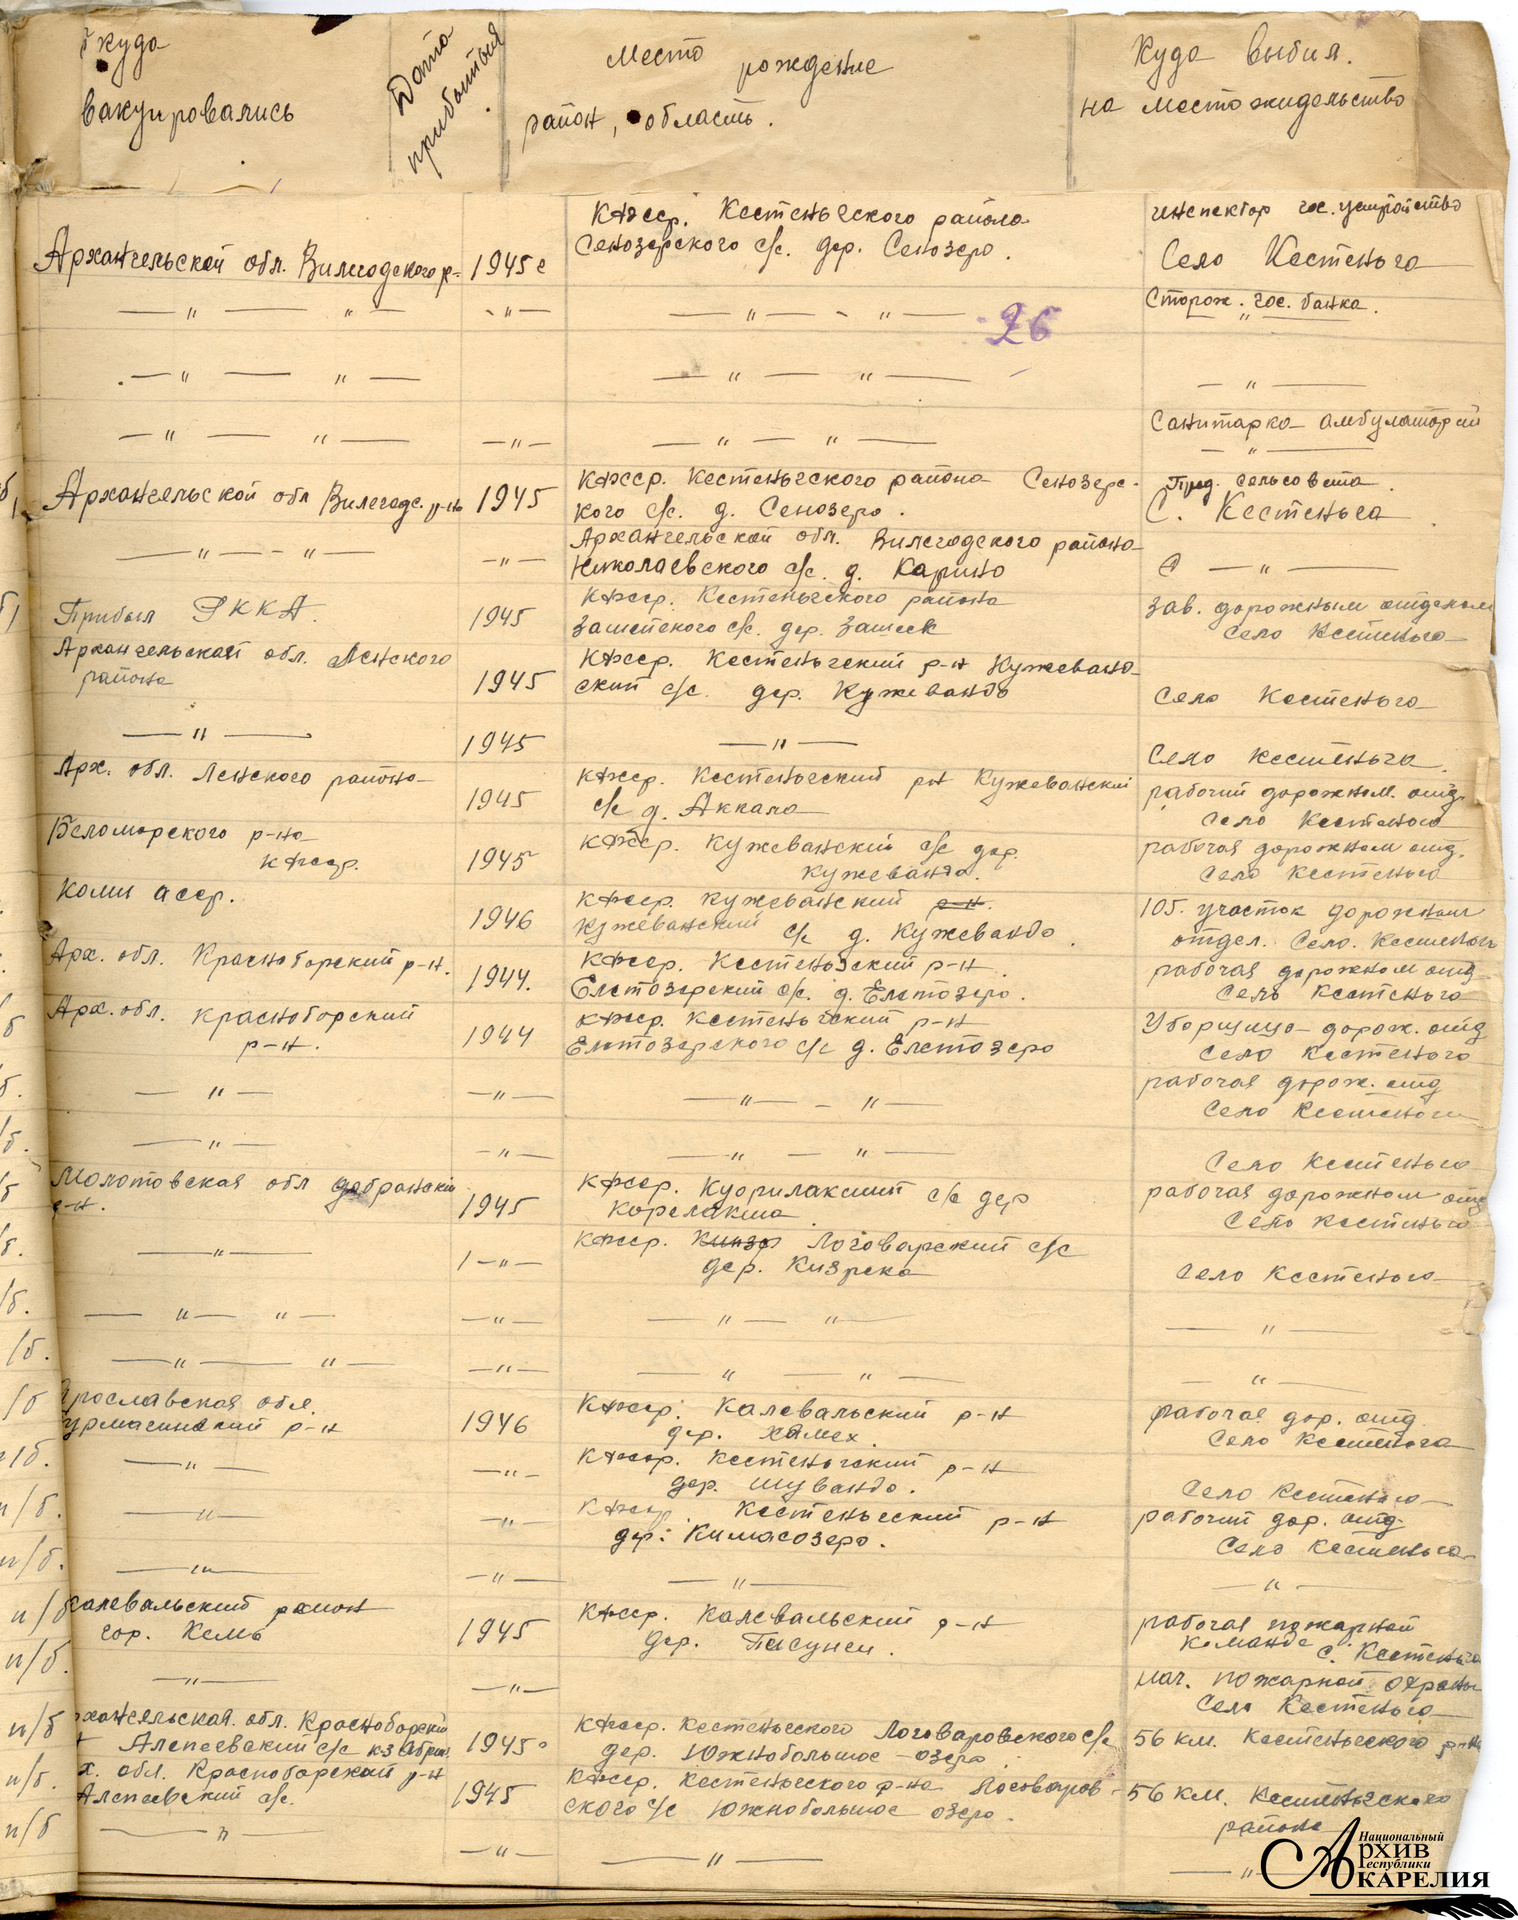 куда
вакуировались
Дата
прибытия
Место рождение
район, область.
Куда выбыл.
на место жидельство
КФсср. Кестеньгского района
инспектор гос. устройство
Архангельской обл. Вилегодского р- 1945 г Сенозерского с/с. дер. Сенозеро. Село Кестеньга
— " — " — - " - — " — - " — Сторож. гос. банка.
— " —
26
— " — " — — " — " — — " —
Санитарка амбулаторий
— " — " — — " — — " — " — — " —
КФсср. Кестеньгского района Сенозерс- Пред. сельсовета.
Архангельской обл Вилегодс. р-на 1945 кого с/с. д. Сенозеро. С. Кестеньга
Архангельской обл. Вилегодского района
— " — - " — — " — Николаевского с/с. д. Карино С — " —
КФсср. Кестеньгского района зав. дорожным отделом
Прибыл РККА. 1945 с/с. дер. Село Кестеньга
Архангельской обл. Ленского КФсср. Кестеньгский р-н Кужевано-
района 1945 ский с/с. дер. Кужеванда Село Кестеньга
— " — 1945 — " — Село Кестеньга.
Арх. обл. Ленского района КФсср. Кестеньгский рн Кужеванский рабочий дорожном. отд.
1945 с/с д. Аккала Село Кестеньга
Беломорского р-на КФсср. Кужеванский с/с дер. рабочая дорожном отд.
КФсср. 1945 Кужеванда. Село Кестеньга
Коми асср. КФсср. Кужеванский р-н. 105. участок дорожном
1946 Кужеванский с/с д. Кужевандо. отдел. Село. Кестеньга
Арх. обл. Красноборский р-н. КФсср. Кестеньгский р-н. рабочая дорожном отд
1944. Елетозерский с/с. д. Елетозеро. Село Кестеньга
Арх. обл. Красноборский КФсср. Кестеньгский р-н Уборщица дорож. отд
р-н. 1944 Елетозерского с/с д. Елетозеро Село Кестеньга
рабочая дорож. отд
— " — — " — — " — - " — Село Кестеньга
— " — — " — — " — " — Село Кестеньга
Молотовская обл КФсср. с/с дер рабочая дорожном отд
р-н. 1945 Село Кестеньга
КФсср. Логоварский с/с
— " — 1 - " - дер. Кизрека Село Кестеньга
— " — " — — " — — " — " — — " —
— " — " — — " — — " — " — — " —
Ярославская обл. КФсср. Калевальский р-н рабочая дор. отд.
р-н 1946 дер. Село Кестеньга
КФсср. Кестеньгский р-н
— " — — " — дер. Шувандо. Село Кестеньга
КФсср. Кестеньгский р-н рабочий дор. отд.
— " — — " — дер. Кимасозеро. Село Кестеньга
— " — — " — — " — — " —
Калевальский район КФсср. Калевальский р-н рабочая пожарной
гор. Кемь 1945 дер. команда с. Кестеньга
нач. пожарной охраны
— " — — " — Село Кестеньга
рхангельская. обл. Красноборский КФсср. Кестеньгского Логоваровского с/с 56 км. Кестеньгского р-на
Алексеевский с/с 1945 дер. Южнобольшое-озеро
х. обл. Красноборский р-н КФсср. Кестеньгского р-на Логоваров- 56 км. Кестеньгского
Алексеевский с/с. 1945 ского с/с Южнобольшое озеро. района
— " — — " — — " — — "
Национальный
Архив
Республики
Карелия